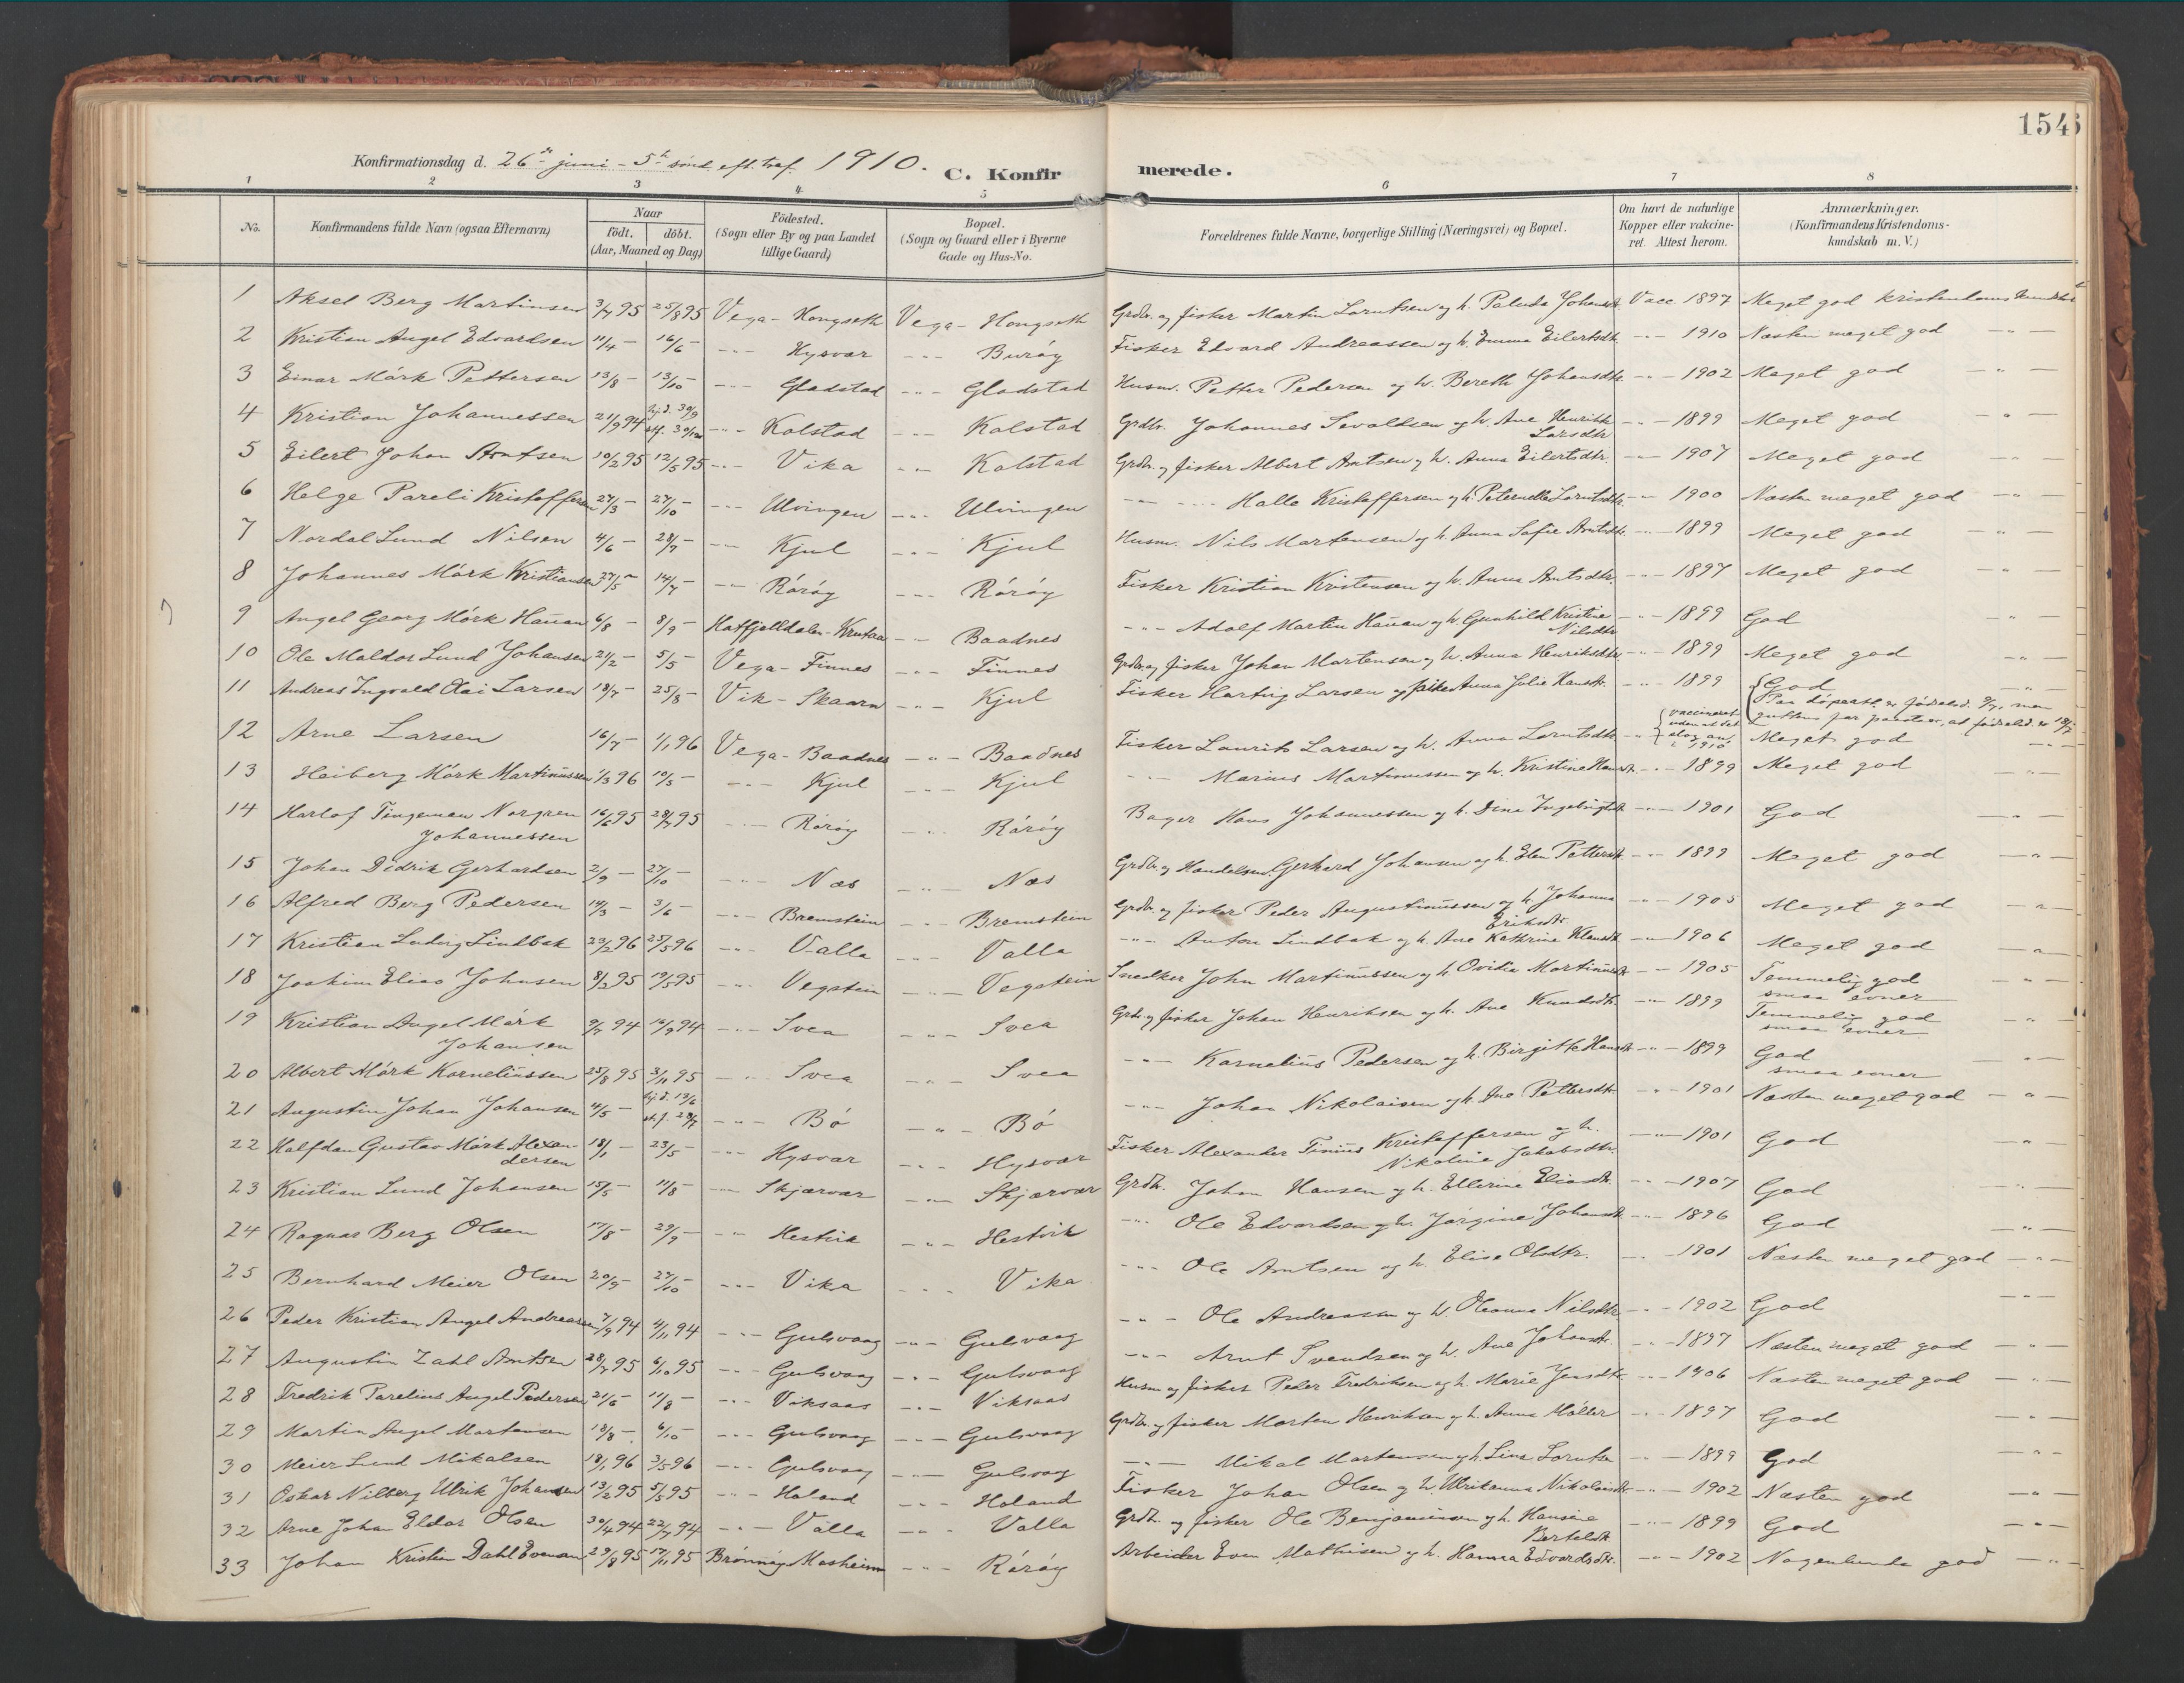 154
Konfirmationsdag d. 26de juni - 5te sönd. eft. tref. 1910.
C. Konfirmerede.
1 2 3 4 5 6 7 8
No. | Konfirmandens fulde Navn (ogsaa Efternavn) | Naar födt. döbt. (Aar, Maaned og Dag) | Födested. (Sogn eller By og paa Landet tillige Gaard) | Bopæl. (Sogn og Gaard eller i Byerne Gade og Hus-No. | Forældrenes fulde Navne, borgerlige Stilling (Næringsvei) og Bopæl. | Om havt de naturlige Kopper eller vakcineret. Attest herom. | Anmærkninger. (Konfirmandens Kristendomskundskab m. V.)
1 Aksel Berg Martinsen 3/7 95 25/8 95 Vega - Hongseth Vega - Hongseth Grdbr. og fisker Martin Lorntsen og h. Paluda Johansdt. Vacc 1897 Meget god kristendoms kundskab
2 Kristian Angel Edvardsen 11/4 - 16/6 - -"- Hysvær -"- Buröy Fisker Edvard Andreassen og h. Emma Eilertsdtr. -"- 1910 Næsten meget god -"-
3 Einar Mörk Pettersen 13/8 - 13/10 - -"- Gladstad -"- Gladstad Husm. Petter Pedersen og h. Bereth Johansdtr. -"- 1902 Meget god -"-
4 Kristian Johannessen 21/9 94 hj.d. 30/9 -"- Kolstad -"- Kolstad Grdbr. Johannes Sevaldsen og h. Ane Henrikke Larsdtr. -"- 1899 Meget god -"-
5 Eilert Johan Arntsen 10/2 95 12/5 95 -"- Vika -"- Kolstad Grdbr. og fisker Albert Arntsen og h. Anna Eilertsdtr. -"- 1907 Meget god -"-
6 Helge Pareli Kristoffersen 27/3 - 27/10 - -"- Ulvingen -"- Ulvingen -"- -"- Halle Kristoffersen og h. Peternelle Lorntsdtr. -"- 1900 Næsten meget god -"-
7 Nordal Lund Nilsen 4/6 - 28/7 - -"- Kjul -"- Kjul Husm. Nils Martensen og h. Anna Sofie Arntsdtr. -"- 1899 Meget god -"-
8 Johannes Mörk Kristiansen 27/5 - 14/7 - -"- Röröy -"- Röröy Fisker Kristian Kristensen og h. Anna Arntsdtr. -"- 1897 Meget god -"-
9 Angel Georg Mörk Hauan 6/8 - 8/9 - Hatfjelldalen - Krutaa -"- Baadnes -"- Adolf Martin Hauan og h. Gunhild Kristine Nilsdtr. -"- 1899 God -"-
10 Ole Maldor Lund Johansen 21/2 - 5/5 - Vega - Finnes -"- Finnes Grdbr. og fisker Johan Martensen og h. Anna Henriksdtr. -"- 1899 Meget god -"-
11 Andreas Ingvald Olai Larsen 18/7 - 25/8 - Vik - Skaarn -"- Kjul Fisker Hartvig Larsen og pike Anna Julie Hansdtr. -"- 1899 { God -"-
Paa döpeatt. er födselsd. 9/7, men guttens far paastaar, at födselsd. er 18/7
12 Arne Larsen 16/7 - 1/1 96 Vega - Baadnes -"- Baadnes Fisker Laurits Larsen og h. Anna Lorntsdtr. -"- { vaccineret uden at det slog an i 1910 Meget god -"-
13 Heiberg Mörk Martinussen 1/3 96 10/5 - -"- Kjul -"- Kjul -"- Marius Martinussen og h. Kristine Hansdt. -"- 1899 Meget god -"-
14 Harlof Tingeman Norgren Johannessen 16/6 95 28/7 95 -"- Röröy -"- Röröy Bager Hans Johannessen og h. Dina Ingebrigtsdt. -"- 1901 God -"-
15 Johan Didrik Gerhardsen 2/9 - 27/10 - -"- Næs -"- Næs Grdbr. og Handelsm. Gerhard Johansen og h. Elen Pettersdt. -"- 1899 Meget god -"-
16 Alfred Berg Pedersen 14/3 - 3/6 - -"- Bremstein -"- Bremstein Grdbr. og fisker Peder Augustinussen og h. Johanna Eriksdtr. -"- 1905 Meget god -"-
17 Kristian Ludvig Lindbak 23/2 96 25/5 96 -"- Valla -"- Valla -"- Anton Lindbak og h. Ane Kathrine Klausdt. -"- 1906 Meget god -"-
18 Joakim Elias Johnsen 8/2 95 19/5 95 -"- Vegstein -"- Vegstein Snedker John Martinussen og h. Ovidia Martinusdt. -"- 1905 Temmelig god smaa evner -"-
19 Kristian Angel Mörk Johansen 9/7 94 16/9 94 -"- Svea -"- Svea Grdbr. og fisker Johan Henriksen og h. Ane Knudsdtr. -"- 1899 Temmelig god smaa evner -"-
20 Albert Mörk Korneliussen 25/8 95 3/11 95 -"- Svea -"- Svea -"- Kornelius Pedersen og h. Birgitte Hansdt. -"- 1899 God smaa evner -"-
21 Augustin Johan Johansen 4/5 - hj.d. 13/6 -"- Bö -"- Bö -"- Johan Nikolaisen og h. Ane Pettersdtr. -"- 1901 Næsten meget god -"-
22 Halfdan Gustav Mörk Alexandersen 18/1 - 23/5 - -"- Hysvær -"- Hysvær Fisker Alexander Tinius Kristoffersen og h. Nikoline Jakobsdtr. -"- 1901 God -"-
23 Kristian Lund Johansen 15/5 - 11/8 - -"- Skjærvær -"- Skjærvær Grdbr. Johan Hansen og h. Ellerine Eliasdt. -"- 1907 God -"-
24 Ragnar Berg Olsen 17/8 - 29/9 - -"- Hestvik -"- Hestvik -"- Ole Edvardsen og h. Jörgine Johansdt. -"- 1896 God -"-
25 Bernhard Meier Olsen 20/9 - 27/10 - -"- Vika -"- Vika -"- Ole Arntsen og h. Elise Olsdtr. -"- 1901 Næsten meget god -"-
26 Peder Kristian Angel Andreassen 7/9 94 4/11 94 -"- Gulsvaag -"- Gulsvaag -"- Ole Andreassen og h. Oleanna Nilsdtr. -"- 1902 God -"-
27 Augustin Zahl Arntsen 28/7 95 6/10 95 -"- Gulsvaag -"- Gulsvaag -"- Arnt Svendsen og h. Ane Johansdt. -"- 1897 Næsten meget god -"-
28 Fredrik Parelius Angel Pedersen 21/6 - 11/8 - -"- Viksaas -"- Viksaas Husm. og fisker Peder Fredriksen og h. Marie Jensdtr. -"- 1906 Næsten meget god -"-
29 Martin Angel Martensen 18/8 - 6/10 - -"- Gulsvaag -"- Gulsvaag Grdbr. og fisker Morten Henriksen og h. Anna Möller -"- 1897 God -"-
30 Meier Lund Mikalsen 18/1 96 3/5 96 -"- Gulsvaag -"- Gulsvaag -"- Mikal Martensen og h. Lina Lorntsen -"- 1899 God -"-
31 Oskar Nilberg Ulrik Johansen 13/2 95 5/5 95 -"- Holand -"- Holand Fisker Johan Olsen og h. Ulrikanna Nikolaisdt. -"- 1902 Næsten god -"-
32 Arne Johan Eldar Olsen 30/4 94 22/7 94 -"- Valla -"- Valla Grdbr. og fisker Ole Benjaminsen og h. Hansine Berteldt. -"- 1899 God -"-
33 Johan Kristian Dahl Evensen 29/8 95 17/11 95 Brönnöy Mosheim -"- Röröy Arbeider Even Mathisen og h. Hanna Edvardsdtr. -"- 1902 Nogenlunde god -"-